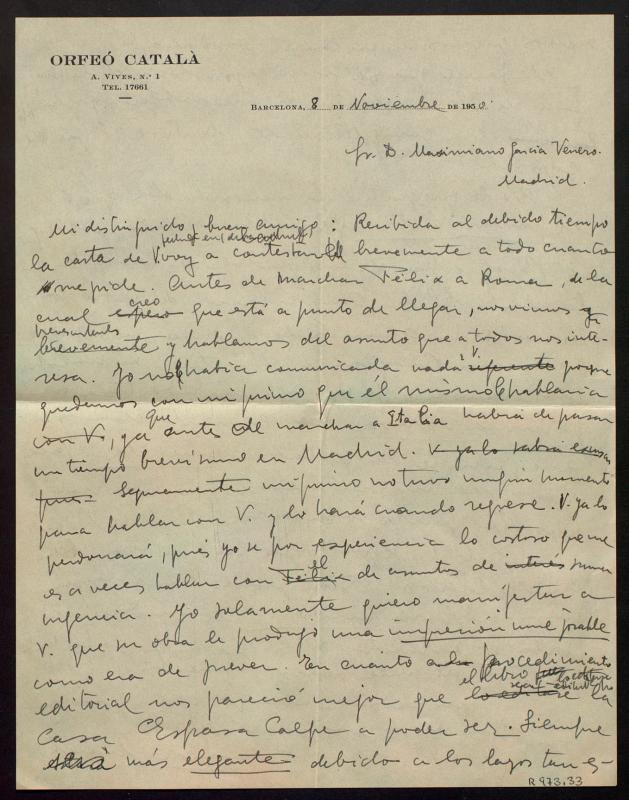 ORFEÓ CATALÀ
A. VIVES, N.º 1
TEL. 17661
BARCELONA, 8 DE Noviembre DE 1950.
Sr. D. Maximiano García Venero.
Madrid.
Mi distinguido y buen amigo: Recibida al debido tiempo
la carta de V. voy a contestar brevemente a todo cuanto
me pide. Antes de marchar Félix a Roma, de la
creo
cual espero que está a punto de llegar, nos vimos
brevemente y hablamos del asunto que a todos nos inte-
resa. Yo no le había comunicado nada a V. referente porque
quedamos con mi primo que él mismo le hablaría
que
con V., ya antes de marchar a Italia habrá de pasar
un tiempo brevísimo en Madrid. V. ya lo sabrá
pues Seguramente mi primo no tuvo ningún momento
para hablar con V. y lo hará cuando regrese. V. ya lo
perdonará, pués yo se por experiencia lo costoso que me
él
es a veces hablar con Félix de asuntos de interés suma
urgencia. Yo solamente quiero manifestar a
V. que su obra le produjo una impresión inmejorable
como era de prever. En cuanto al procedimiento
el libro
editorial nos pareció mejor que lo editase la
Casa Espasa Calpe a poder ser. Siempre
más elegante debido a los lazos tan es-
R 973.33